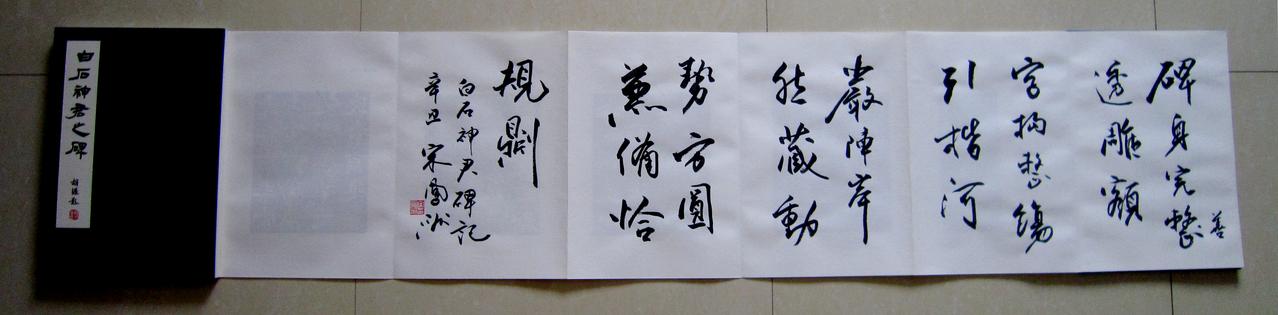 碑身完整
善
透雕額
引楷河
嚴陣岸
然藏動
勢方圓
兼備恰
規
白石神君碑記
辛丑 宋
白石神君之碑